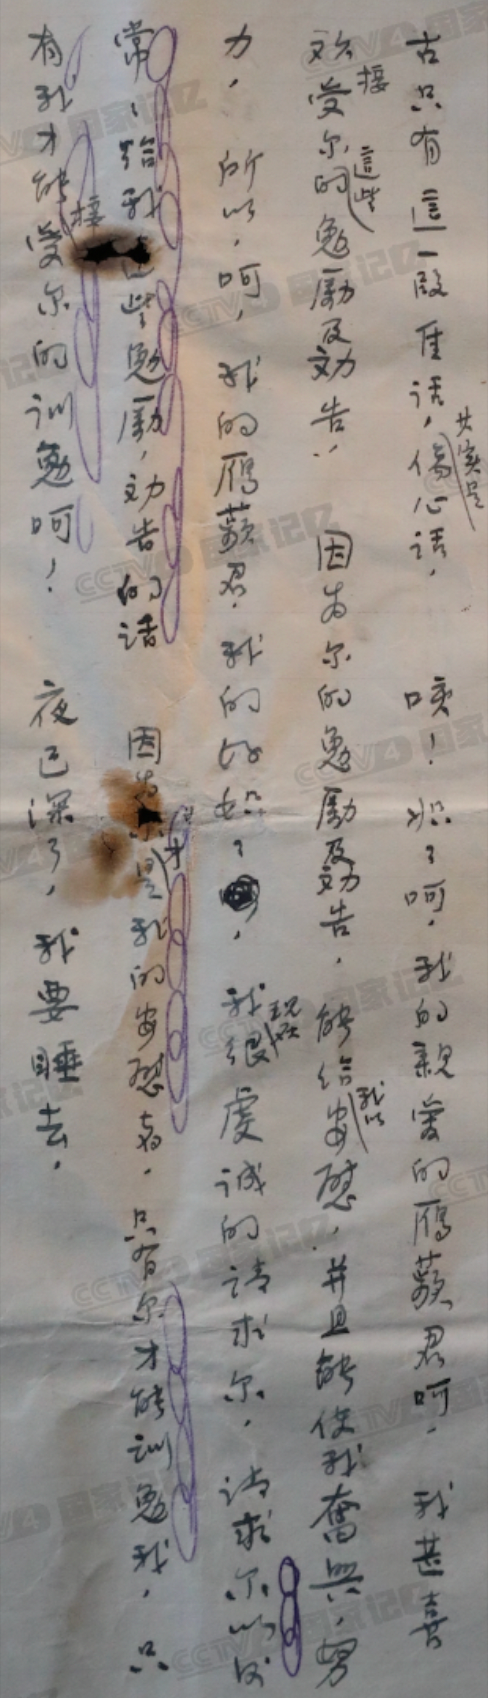 古只有這一段佳话，傷心话，其實是 唉！姐了呵，我的親愛的雁蘋君呵，我甚喜
欢接受尔的這些勉励及劝告， 因为尔的勉励及劝告，能给我以安慰，并且能使我奮興，努
力，所以，呵，我的雁蘋君，我的好姐了，我現在很虔诚的请求尔，请求尔以后
常，给我這些勉励，劝告的话 因为是我的安慰者，只有尔才能训勉我，只
有我才能接受尔的训勉呵！ 夜已深了，我要睡去，
CCTV4 国家记忆